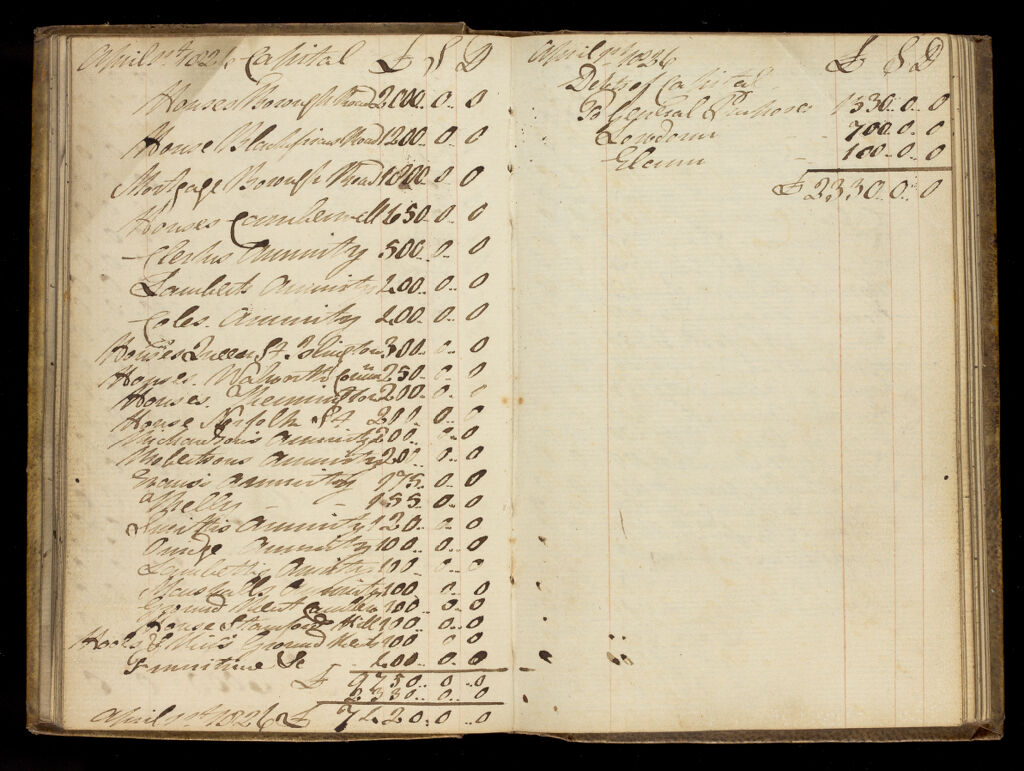 April 1st 1826 Capital £ S D
Houses Borough Road 2000..0..0
House Blackfriars Road 1200..0..0
Mortgage Borough Road 1000..0..0
Houses Camberwell 650..0..0
Annuity 500..0..0
Lamberts Annuity 200..0..0
Coles. Annuity 200..0..0
Houses Queen St Islington 300..0..0
Houses. Walworth 250..0..0
Houses. Kennington 200..0..0
House Norfolk St 200..0..0
Richardsons Annuity 200..0..0
Robertsons Annuity 200..0..0
Evans Annuity 175..0..0
155..0..0
Annuity 120..0..0
Annuity 100..0..0
Lambeths Annuity 100..0..0
Marshalls Annuity 100..0..0
Ground Rent 100..0..0
House Stamford Hill 100..0..0
Ground Rent 100..0..0
Furniture &c 600..0..0
£ 9750..0..0
2330..0..0
April 1st 1826 £ 7420..0..0
April 1st 1826 £ S D
Debts of Capital
To General Purposes 1530..0..0
700..0..0
100..0..0
£ 2330..0..0